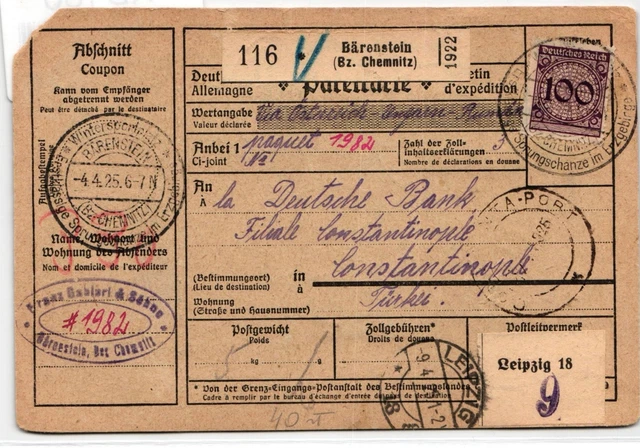 Abschnitt
Coupon
Kann vom Empfänger
abgetrennt werden
Peut être détaché par le destinataire
Aufgabestempel
Wintersportplatz
BÄRENSTEIN
-4.4.25.6-7N
(Bz. CHEMNITZ)
Name, Wohnort und
Wohnung des Absenders
Nom et domicile de l'expéditeur
#1982
Bärenstein, Bez Chemnitz
116
Bärenstein
(Bz. Chemnitz)
1922
Deutsches Reich
100
Sprungschanze im Erzgebirge
Allemagne
d'expédition
Wertangabe
Valeur déclarée
Anbei 1 paquet 1982
Ci-joint
Zahl der Zoll-
inhaltserklärungen 3
Nombre de déclarations en douane
An la Deutsche Bank
À
Filiale Constantinople
in Constantinople
à
(Bestimmungsort)
(Lieu de destination)
Türkei.
Wohnung
(Straße und Hausnummer)
Postgewicht
Poids
5 kg
g
Zollgebühren*
Droits de douane
Postleitvermerk
LEIPZIG
Leipzig 18
9
* Von der Grenz-Eingangs-Postanstalt des Bestimmungslandes
Cadre à remplir par le bureau d'échange d'entrée
de destination
40